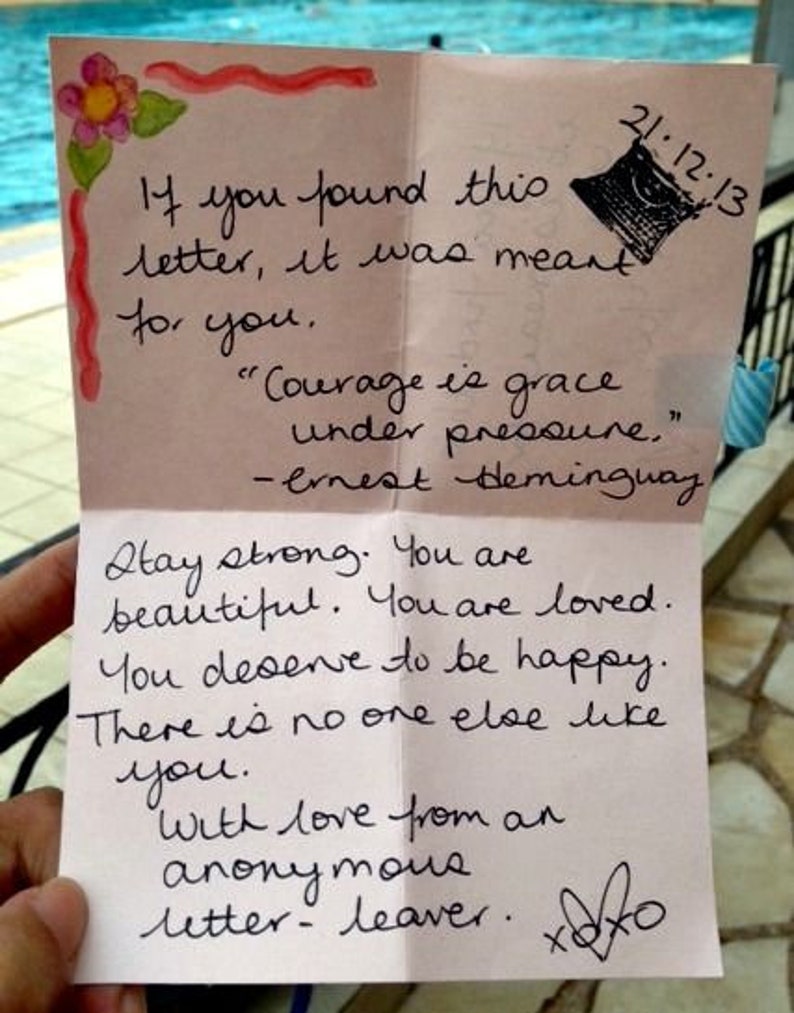 21.12.13
If you found this
letter, it was meant
for you.
"Courage is grace
under pressure."
- Ernest Hemingway
Stay strong. You are
beautiful. You are loved.
You deserve to be happy.
There is no one else like
you.
With love from an
anonymous
letter-leaver.
xoxo